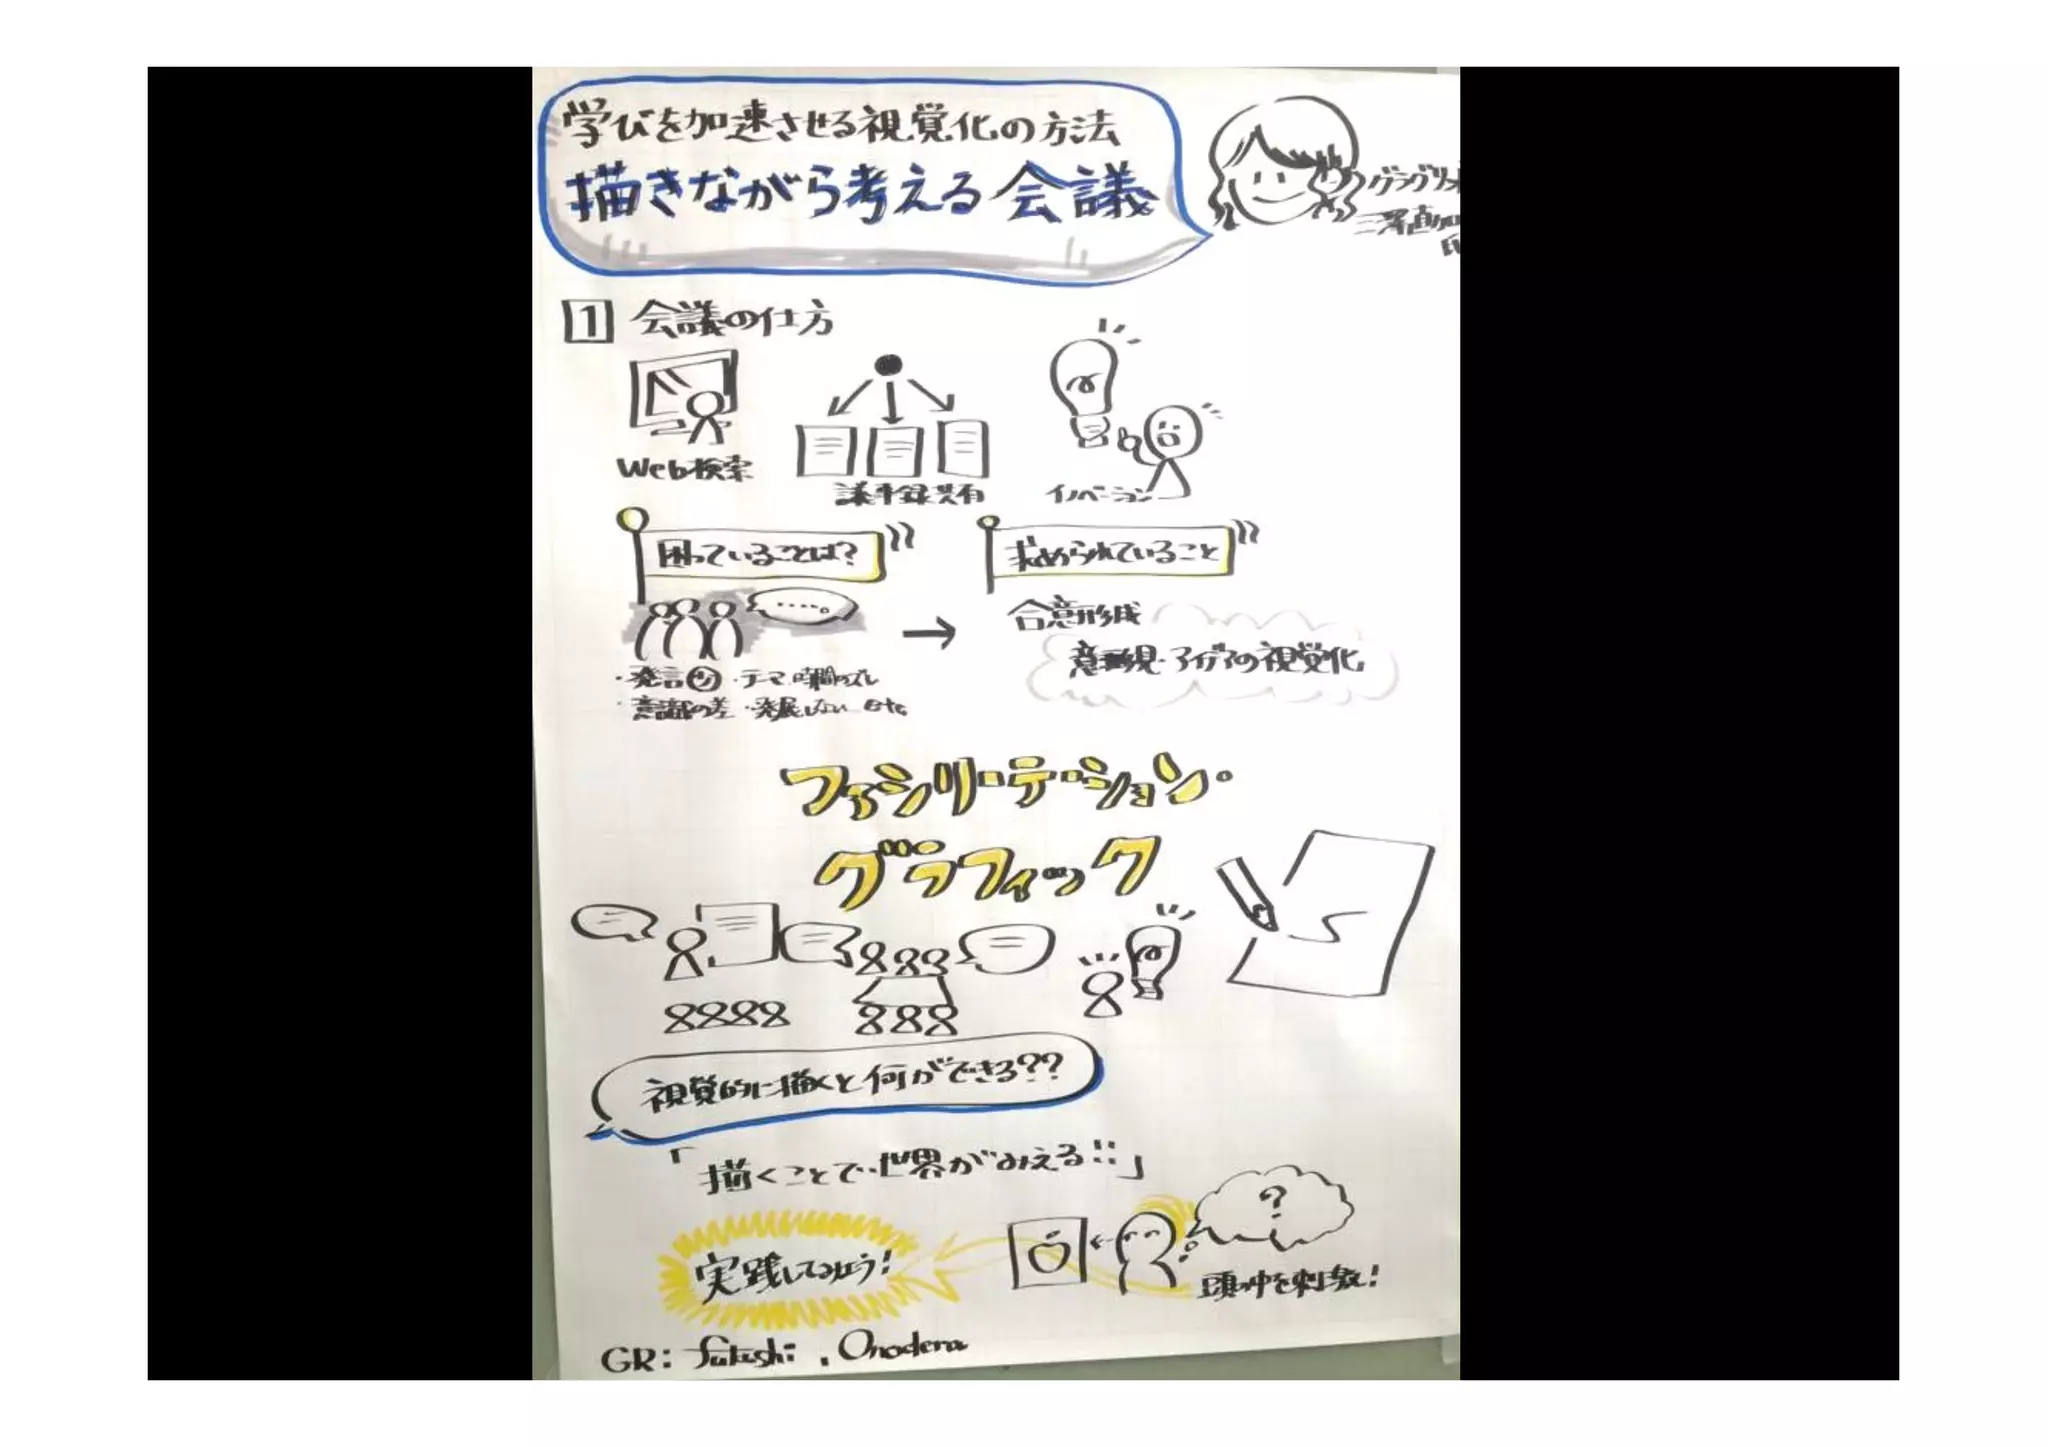 学びを加速させる視覚化の方法
描きながら考える会議
グラグリッド
三澤直加
1 会議の仕方
Web検索
議事録共有
イノベーション
困っていることは?
求められていること
....。
合意形成
意見・アイデアの視覚化
・発言 ・テーマ、時間のズレ
・意識の差 ・発展しない etc
ファシリテーション・
グラフィック
視覚的に描くと何ができる??
「描くことで世界がみえる!!」
?
実践してみよう!
頭の中を刺激!
GR: Satoshi . Onodera